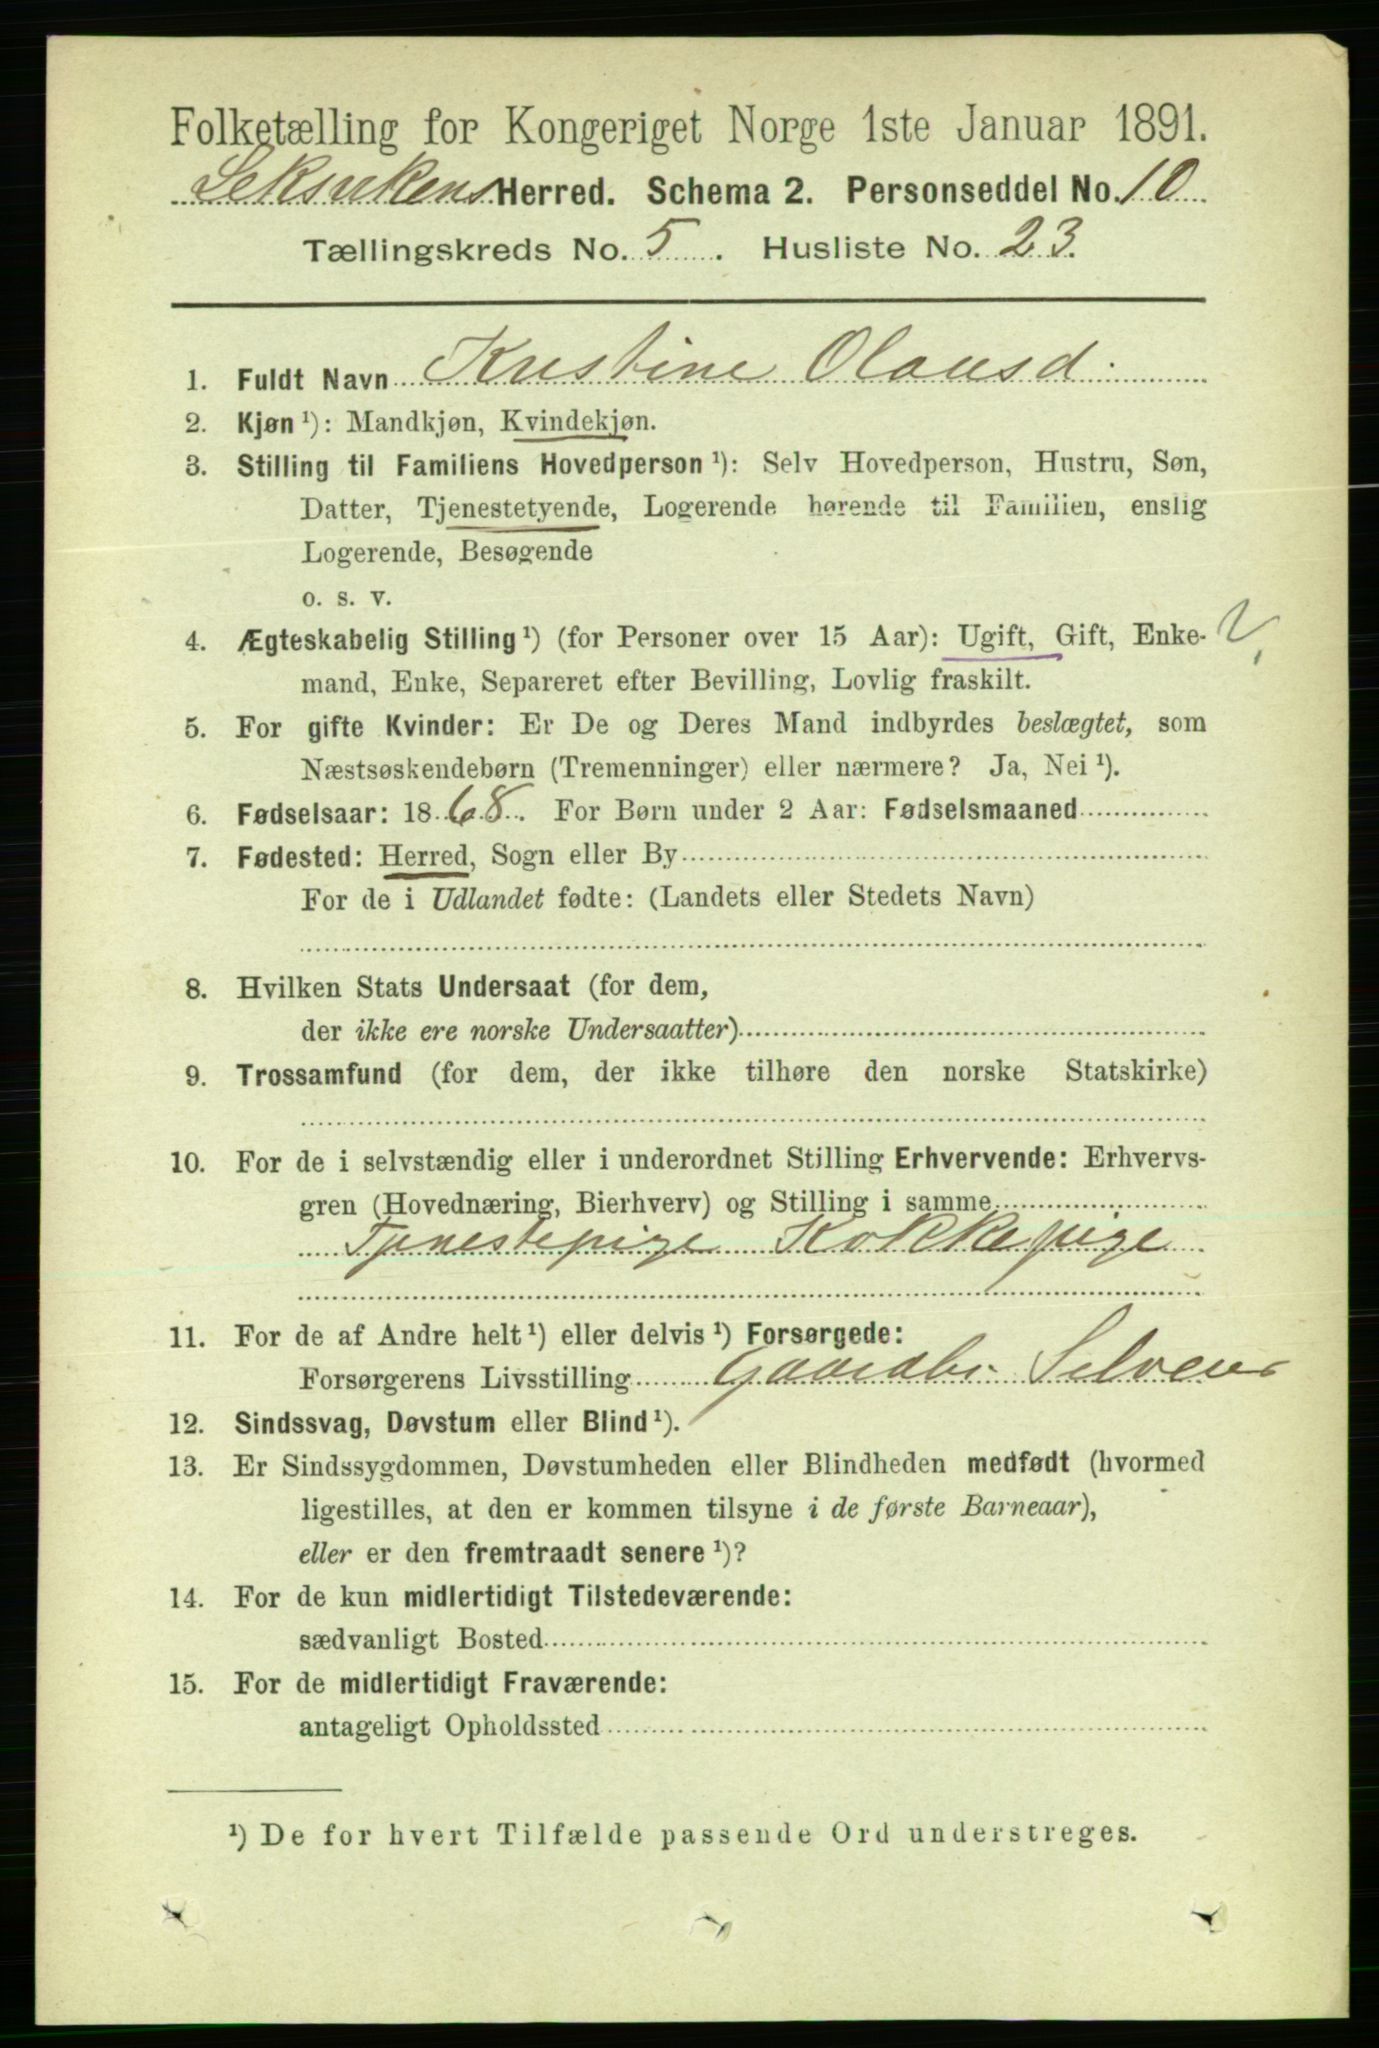 Folketælling for Kongeriget Norge 1ste Januar 1891.
Leksvikens Herred. Schema 2. Personseddel No. 10
Tællingskreds No. 5. Husliste No. 23.
1. Fuldt Navn Kristine Olausd.
2. Kjøn ¹): Mandkjøn, Kvindekjøn.
3. Stilling til Familiens Hovedperson ¹): Selv Hovedperson, Hustru, Søn,
Datter, Tjenestetyende, Logerende hørende til Familien, enslig
Logerende, Besøgende
o. s. v.
4. Ægteskabelig Stilling ¹) (for Personer over 15 Aar): Ugift, Gift, Enke-
mand, Enke, Separeret efter Bevilling, Lovlig fraskilt.
5. For gifte Kvinder: Er De og Deres Mand indbyrdes beslægtet, som
Næstsøskendebørn (Tremenninger) eller nærmere? Ja, Nei ¹).
6. Fødselsaar: 1868. For Børn under 2 Aar: Fødselsmaaned
7. Fødested: Herred, Sogn eller By
For de i Udlandet fødte: (Landets eller Stedets Navn)
8. Hvilken Stats Undersaat (for dem,
der ikke ere norske Undersaatter)
9. Trossamfund (for dem, der ikke tilhøre den norske Statskirke)
10. For de i selvstændig eller i underordnet Stilling Erhvervende: Erhvervs-
gren (Hovednæring, Bierhverv) og Stilling i samme
Tjenestepige Kokkepige
11. For de af Andre helt ¹) eller delvis ¹) Forsørgede:
Forsørgerens Livsstilling Gaardbr. Selveier
12. Sindssvag, Døvstum eller Blind ¹).
13. Er Sindssygdommen, Døvstumheden eller Blindheden medfødt (hvormed
ligestilles, at den er kommen tilsyne i de første Barneaar),
eller er den fremtraadt senere ¹)?
14. For de kun midlertidigt Tilstedeværende:
sædvanligt Bosted
15. For de midlertidigt Fraværende:
antageligt Opholdssted
¹) De for hvert Tilfælde passende Ord understreges.